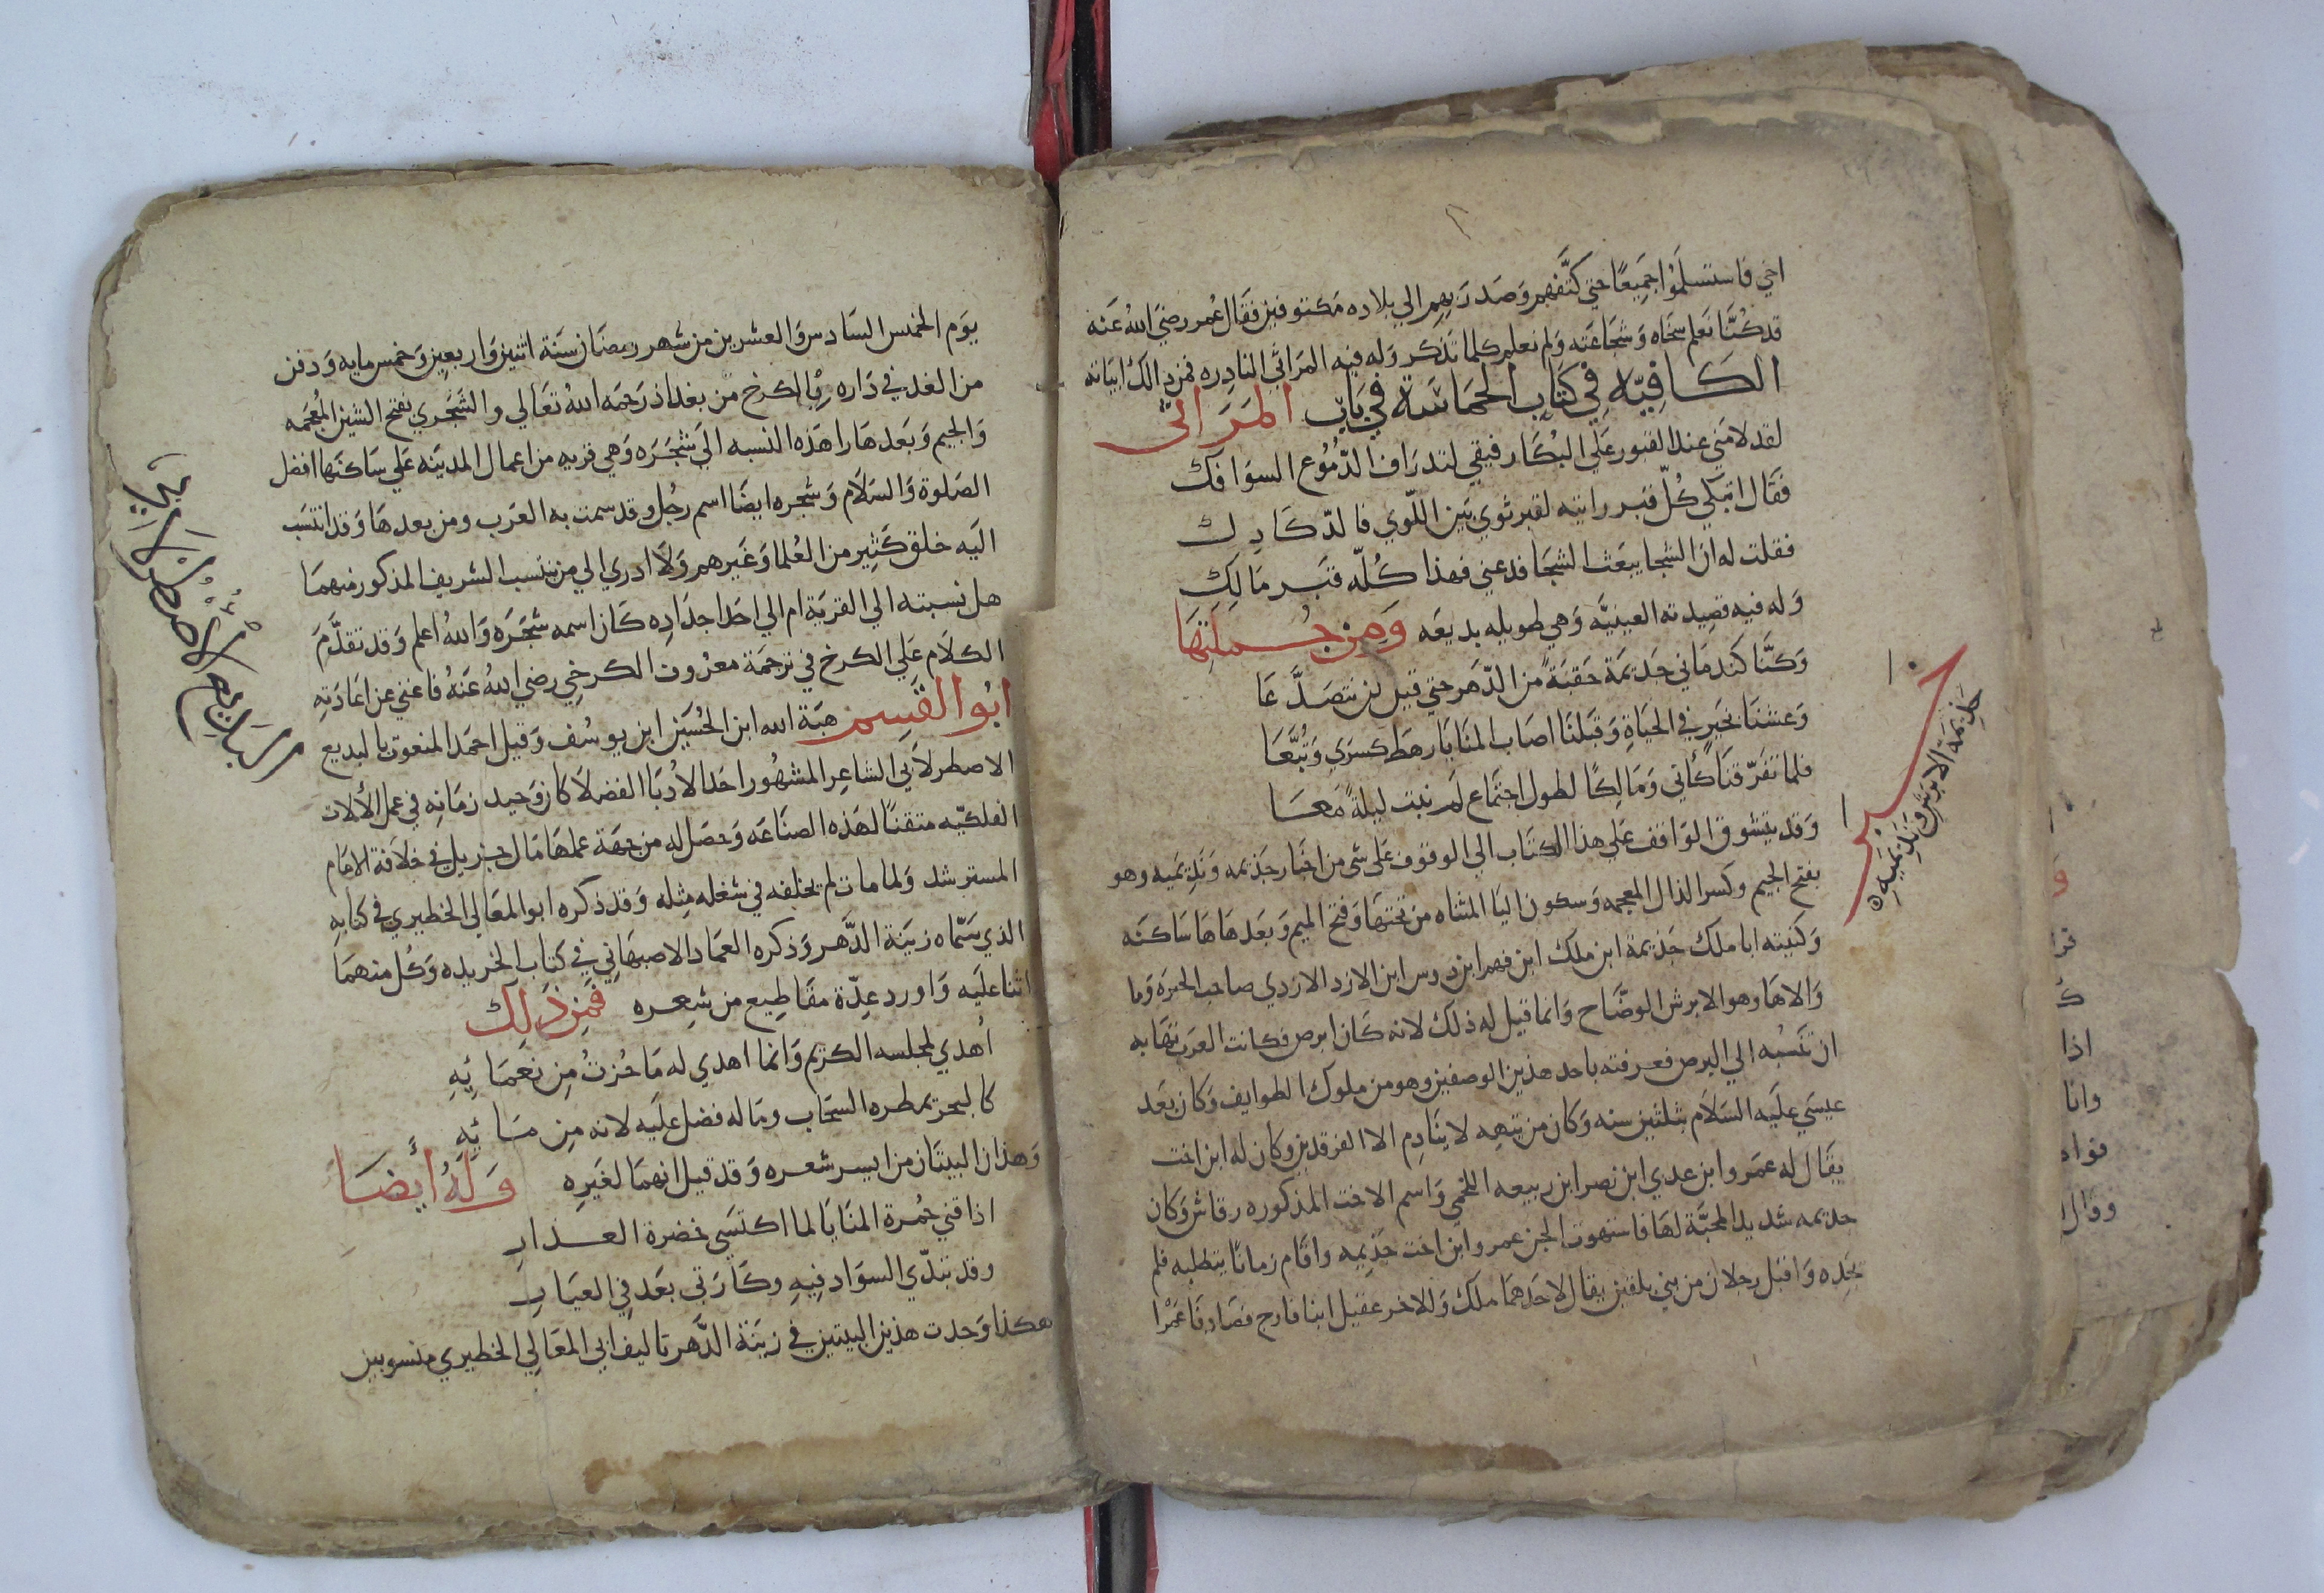 اخي فاستسلموا جميعًا حتي كتّفهم وصدر بهم الي بلاده مكتوفين فقال عمر رضي الله عنه
قد كنّا نعلم سخاه وشجاعته ولم نعلم كلما تذكر وله فيه المراثي النادره فمن ذالك ابياته
الكافيّة في كتاب الحماسة في باب المراثي
لقد لامني عند القبور علي البكا رفيقي لتدراف الدّموع السوافك
فقال اتبكي كلّ قبر رايته لقبر ثوي بين اللّوي فالدّكادك
فقلت له ان الشجا يبعث الشجا فدعني فهذا كلّه قبر مالك
وله فيه قصيدته العينيّه وهي طويله بديعه ومن جملتها
وكنّا كندماني جذيمة حقبةً من الدّهر حتي قيل لن نتصدّعا
وعشنا بخير في الحياة وقبلنا اصاب المنايا رهط كسري وتبّعا
فلما تفرّقنا كأني ومالكًا لطول اجتماع لم نبت ليلةً معا
وقد يتشوق الواقف علي هذا الكتاب الي الوقوف علي شي من اخبار جذيمه ونديميه وهو
بفتح الجيم وكسر الذال المعجمه وسكون اليا المثناه من تحتها وفتح الميم وبعدها ها ساكنه
وكنيته ابا ملك جذيمة ابن ملك ابن فهم ابن دوس ابن الازد الازدي صاحب الحيرة وما
والاها وهو الابرش الوضّاح وانما قيل له ذلك لانه كان ابرص فكانت العرب تهابه
ان تنسبه الي البرص فعرفته باحد هذين الوصفين وهو من ملوك الطوايف وكان بعد
عيسي عليه السلام بثلثين سنه وكان من تيهه لا ينادم الا الفرقدين وكان له ابن اخت
يقال له عمرو ابن عدي ابن نصر ابن ربيعه اللخمي واسم الاخت المذكوره رقاش وكان
جذيمه شديد المحبّة لها فاستهوت الجن عمرو ابن اخت جذيمه واقام زمانًا يتطلبه فلم
يجده واقبل رجلان من بني بلقين يقال لاحدهما ملك وللاخر عقيل ابنا فارج فصادفا عمرًا
جذيمة الابرش ونديميه
يوم الخمس السادس والعشرين من شهر رمضان سنة اثنين واربعين وخمس مايه ودفن
من الغد في داره بالكرخ من بغداذ رحمه الله تعالي والشجري بفتح الشين المعجمه
والجيم وبعدها را هذه النسبه الي شجره وهي قريه من اعمال المدينه علي ساكنها افضل
الصلوة والسلام وشجره ايضا اسم رجل وقد سمت به العرب ومن بعدها وقد انتسب
اليه خلق كثير من العلما وغيرهم ولا ادري الي من ينتسب الشريف المذكور منهما
هل نسبته الي القرية ام الي احد اجداده كان اسمه شجره والله اعلم وقد تقدّم
الكلام علي الكرخ في ترجمة معروف الكرخي رضي الله عنه فاغني عن اعادته
ابو القسم هبة الله ابن الحسين ابن يوسف وقيل احمد المنعوت بالبديع
الاصطرلابي الشاعر المشهور احد الادبا الفضلا كان وحيد زمانه في عمل الألات
الفلكيّه متقنًا لهذه الصناعه وحصل له من جهة عملها مال جزيل في خلافة الامام
المسترشد ولما مات لم يخلفه في شغله مثله وقد ذكره ابو المعالي الخطيري في كتابه
الذي سمّاه زينة الدّهر وذكره العماد الاصبهاني في كتاب الخريده وكل منهما
اثنا عليه واورد عدّة مقاطيع من شعره فمن ذلك
أهدي لمجلسه الكريم وانما اهدي له ما حزت من نعمائه
كالبحر يمطره السحاب وما له فضل عليه لانه من مائه
وهذان البيتان من ايسر شعره وقد قيل انهما لغيره وله أيضا
اذاقني حمرة المنايا لما اكتسي خضرة العذار
وقد تبدّي السواد فيه وكارتي بعد في العيار
هكذا وجدت هذين البيتين في زينة الدّهر تاليف ابي المعالي الخطيري منسوبين